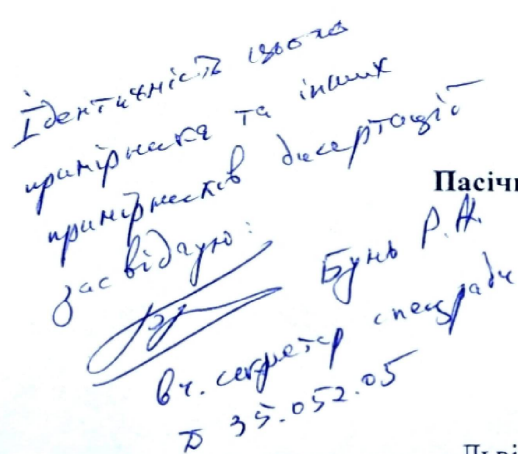 Ідентичність цього
примірника та інших
примірників дисертації
засвідчую:
Пасічн
Бунь Р.А.
вч. секретар спецради
Д 35.052.05
Льві